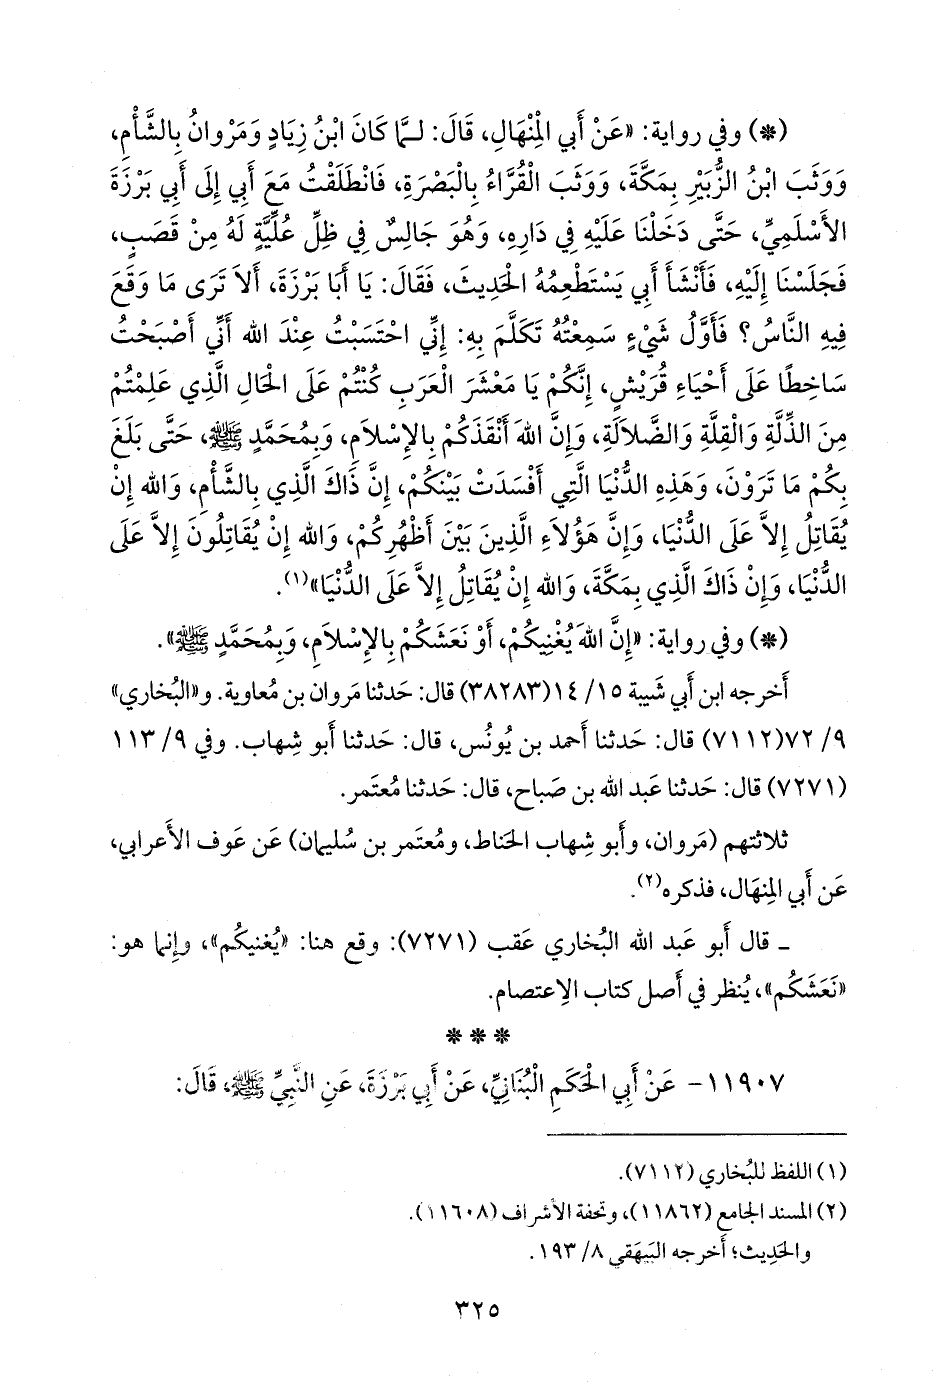 (*) وفي رواية: «عَنْ أَبي المِنْهَالِ، قَالَ: لَـمَّا كَانَ ابْنُ زِيَادٍ وَمَرْوانُ بِالشَّأْمِ،
وَوَثَبَ ابْنُ الزُّبَيْرِ بِمَكَّةَ، وَوَثَبَ الْقُرَّاءُ بِالْبَصْرَةِ، فَانْطَلَقْتُ مَعَ أَبِي إِلَى أَبِي بَرْزَةَ
الأَسْلَمِيِّ، حَتَّى دَخَلْنَا عَلَيْهِ فِي دَارِهِ، وَهُوَ جَالِسٌ فِي ظِلِّ عُلِّيَّةٍ لَهُ مِنْ قَصَبٍ،
فَجَلَسْنَا إِلَيْهِ، فَأَنْشَأَ أَبِي يَسْتَطْعِمُهُ الْحَدِيثَ، فَقَالَ: يَا أَبَا بَرْزَةَ، أَلاَ تَرَى مَا وَقَعَ
فِيهِ النَّاسُ؟ فَأَوَّلُ شَيْءٍ سَمِعْتُهُ تَكَلَّمَ بِهِ: إِنِّي احْتَسَبْتُ عِنْدَ الله أَنِّي أَصْبَحْتُ
سَاخِطًا عَلَى أَحْيَاءِ قُرَيْشٍ، إِنَّكُمْ يَا مَعْشَرَ الْعَرَبِ كُنْتُمْ عَلَى الْحَالِ الَّذِي عَلِمْتُمْ
مِنَ الذِّلَّةِ وَالْقِلَّةِ وَالضَّلاَلَةِ، وَإِنَّ اللهَ أَنْقَذَكُمْ بِالإِسْلاَمِ، وَبِمُحَمَّدٍ ﷺ، حَتَّى بَلَغَ
بِكُمْ مَا تَرَوْنَ، وَهَذِهِ الدُّنْيَا الَّتِي أَفْسَدَتْ بَيْنَكُمْ، إِنَّ ذَاكَ الَّذِي بِالشَّأْمِ، وَالله إِنْ
يُقَاتِلُ إِلاَّ عَلَى الدُّنْيَا، وَإِنَّ هَؤُلاَءِ الَّذِينَ بَيْنَ أَظْهُرِكُمْ، وَالله إِنْ يُقَاتِلُونَ إِلاَّ عَلَى
الدُّنْيَا، وَإِنْ ذَاكَ الَّذِي بِمَكَّةَ، وَالله إِنْ يُقَاتِلُ إِلاَّ عَلَى الدُّنْيَا»(١).
(*) وفي رواية: «إِنَّ اللهَ يُغْنِيكُمْ، أَوْ نَعَشَكُمْ بِالإِسْلاَمِ، وَبِمُحَمَّدٍ ﷺ».
أَخرجه ابن أَبي شَيبة ١٥/ ١٤(٣٨٢٨٣) قال: حَدثنا مَروان بن مُعاوية. و«البُخاري»
٩/ ٧٢(٧١١٢) قال: حَدثنا أَحمد بن يُونُس، قال: حَدثنا أَبو شِهاب. وفي ٩/ ١١٣
(٧٢٧١) قال: حَدثنا عَبد الله بن صَباح، قال: حَدثنا مُعتَمر.
ثلاثتهم (مَروان، وأَبو شِهاب الحَناط، ومُعتَمر بن سُليمان) عَن عَوف الأَعرابي،
عَن أَبي المِنهَال، فذكره(٢).
ـ قال أَبو عَبد الله البُخاري عَقب (٧٢٧١): وقع هنا: «يُغنيكُم»، وإِنما هو:
«نَعَشَكُم»، يُنظر في أَصل كتاب الاِعتصام.
* * *
١١٩٠٧- عَنْ أَبِي الْحَكَمِ الْبُنَانِيِّ، عَنْ أَبِي بَرْزَةَ، عَنِ النَّبِيِّ ﷺ، قَالَ:
(١) اللفظ للبُخاري (٧١١٢).
(٢) المسند الجامع (١١٨٦٢)، وتحفة الأشراف (١١٦٠٨).
والحَدِيث؛ أَخرجه البَيهَقي ٨/ ١٩٣.
٣٢٥